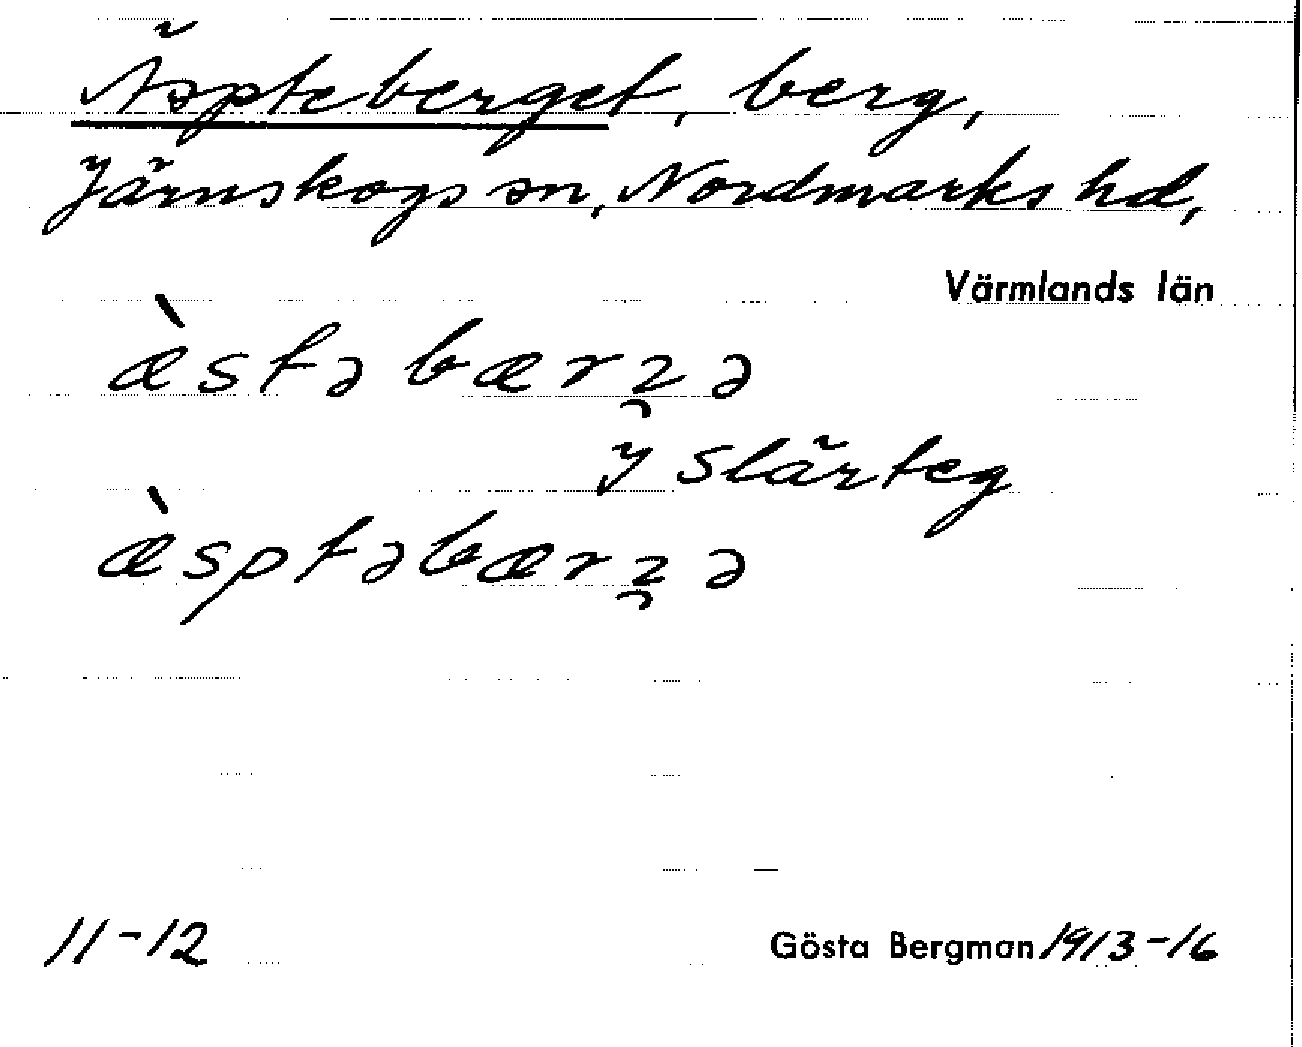 Äspteberget, berg,
Järnskogs sn, Nordmarks hd,
Värmlands län
æ̀stə bærʒ̮ə
J Slärteg
æ̀sptəbærʒ̮ə
11-12
Gösta Bergman 1913-16